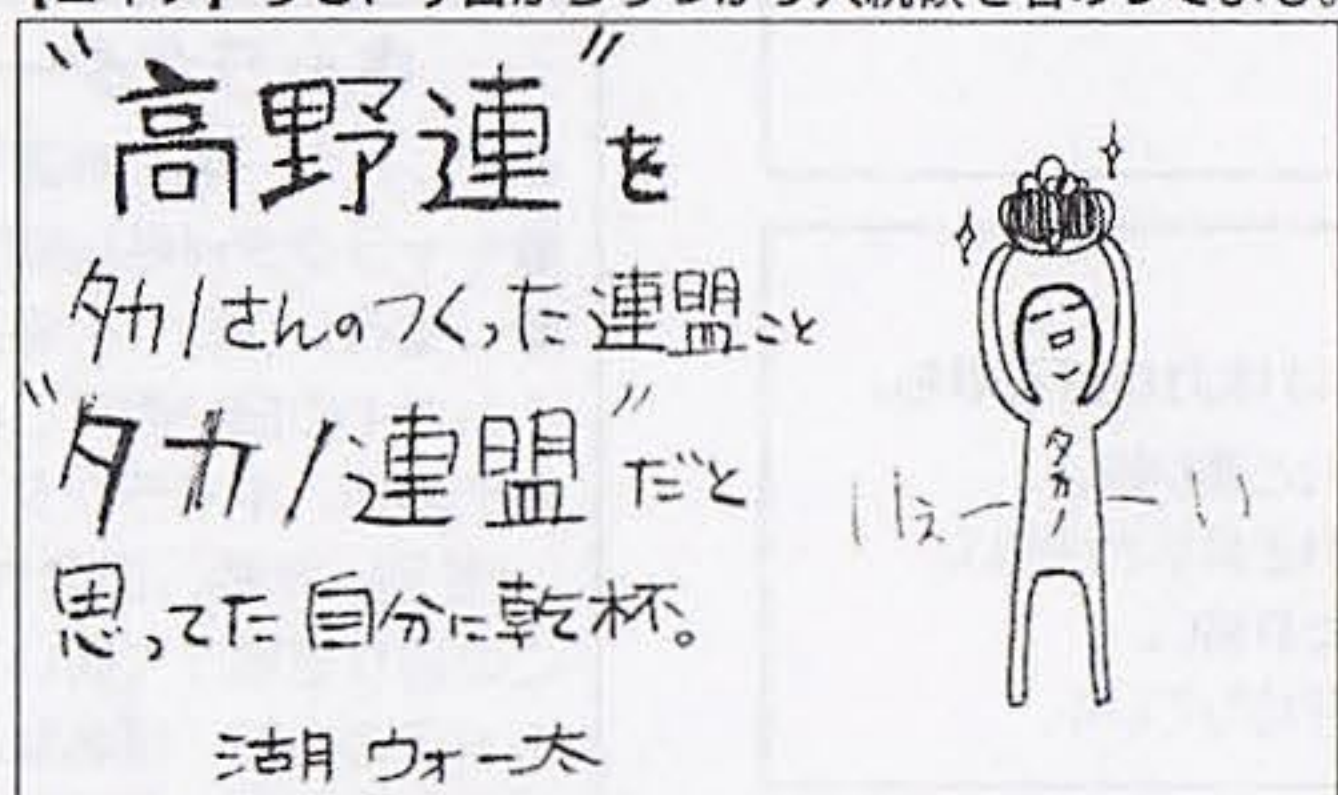 "高野連"を
タカノさんのつくった連盟こと
"タカノ連盟"だと
思ってた自分に乾杯。
湖月ウォー太
タカノ
いいえ
い